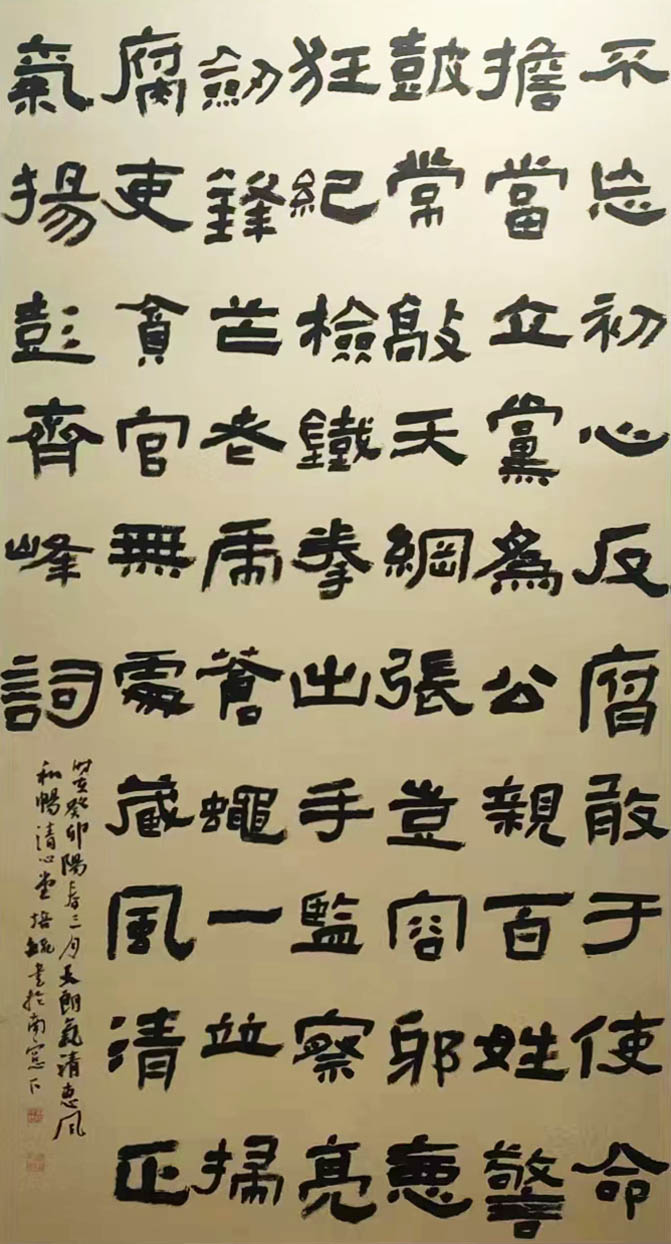 不忘初心反腐敢于使命
擔當立黨為公親百姓警
鼓常敲天網張豈容邪惡
狂紀檢鐵拳出手監察亮
劍鋒芒老虎蒼蠅一並掃
腐吏貪官無處藏風清正
氣揚彭齊峰詞
時在癸卯陽春三月天朗氣清惠風
和暢清心堂培書於南窗下